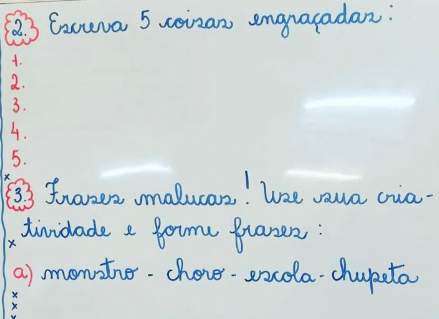 2. Escreva 5 coisas engraçadas:
1.
2.
3.
4.
5.
3. Frases malucas! Use sua cria-
tividade e forme frases:
a) monstro - choro - escola - chupeta